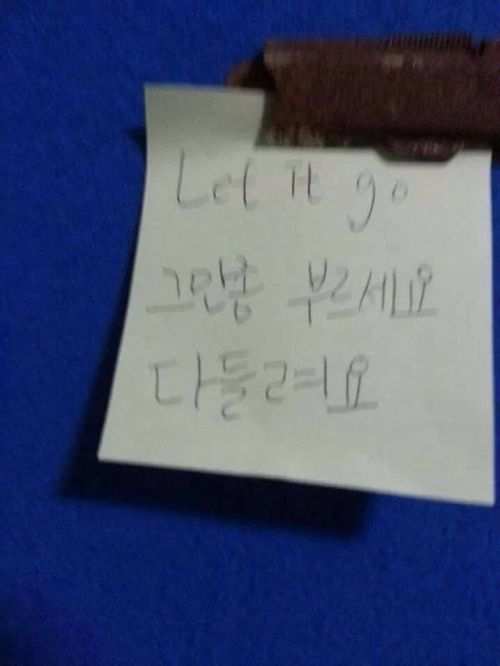 Let It go
그만좀 부르세요
다들려요